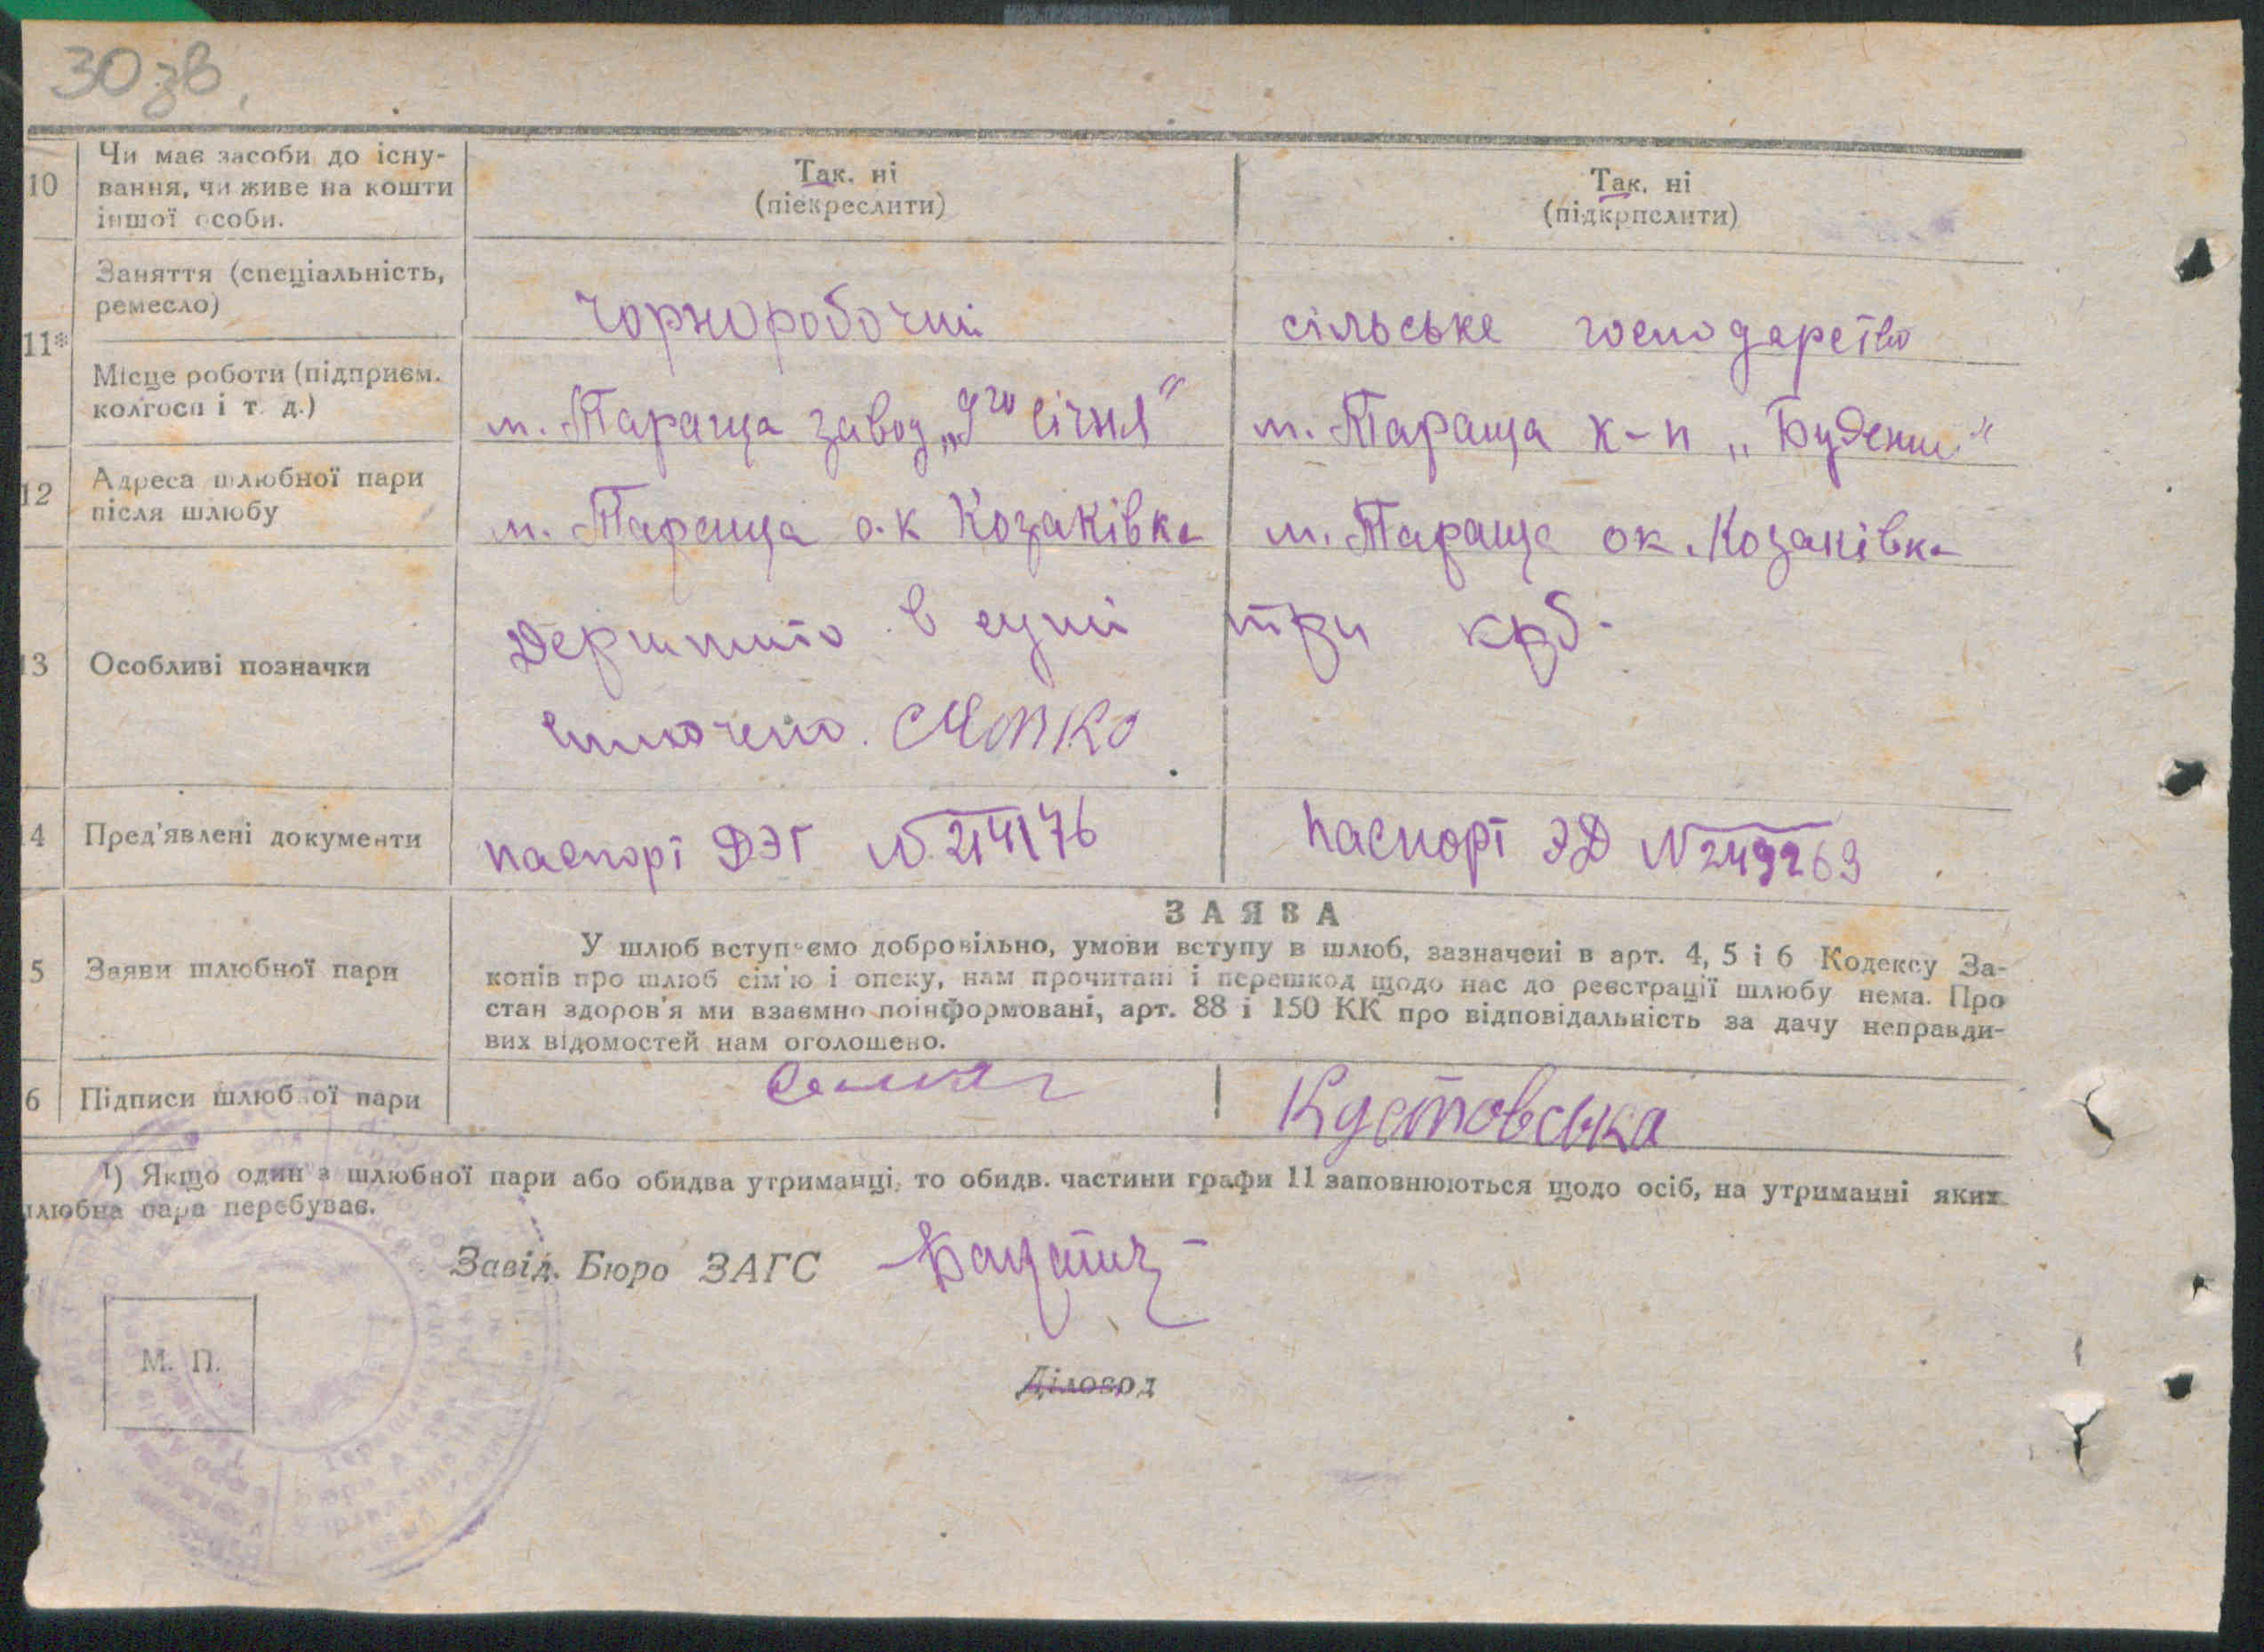 30 зв.
10
Чи має засоби до існу-
вання, чи живе на кошти
іншої особи.
Так. ні
(піекреслити)
Так. ні
(підкрпслити)
11*
Заняття (спеціальність,
ремесло)
Чорноробочий
сільське господарство
Місце роботи (підприєм.
колгосп і т. д.)
м. Тараща завод „9го січня"
м. Тараща к-п „Буденн"
12
Адреса шлюбної пари
після шлюбу
м. Тараща о.к Козаківка
м. Тараща ок. Козаківка
13
Особливі позначки
Держмито в сумі три крб.
4
Пред'явлені документи
паспорт ДЭГ № 214176
паспорт ЭД № 249269
ЗАЯВА
5
Заяви шлюбної пари
У шлюб вступаємо добровільно, умови вступу в шлюб, зазначені в арт. 4, 5 і 6 Кодексу За-
конів про шлюб сім'ю і опеку, нам прочитані і перешкод щодо нас до реєстрації шлюбу нема. Про
стан здоров'я ми взаємно поінформовані, арт. 88 і 150 КК про відповідальність за дачу неправди-
вих відомостей нам оголошено.
6
Підписи шлюб ої пари
Кустовська
¹) Якщо один з шлюбної пари або обидва утриманці, то обидв. частини графи 11 заповнюються щодо осіб, на утриманні яких
шлюбна пара перебуває.
Завід. Бюро ЗАГС
М. П.
Діловод